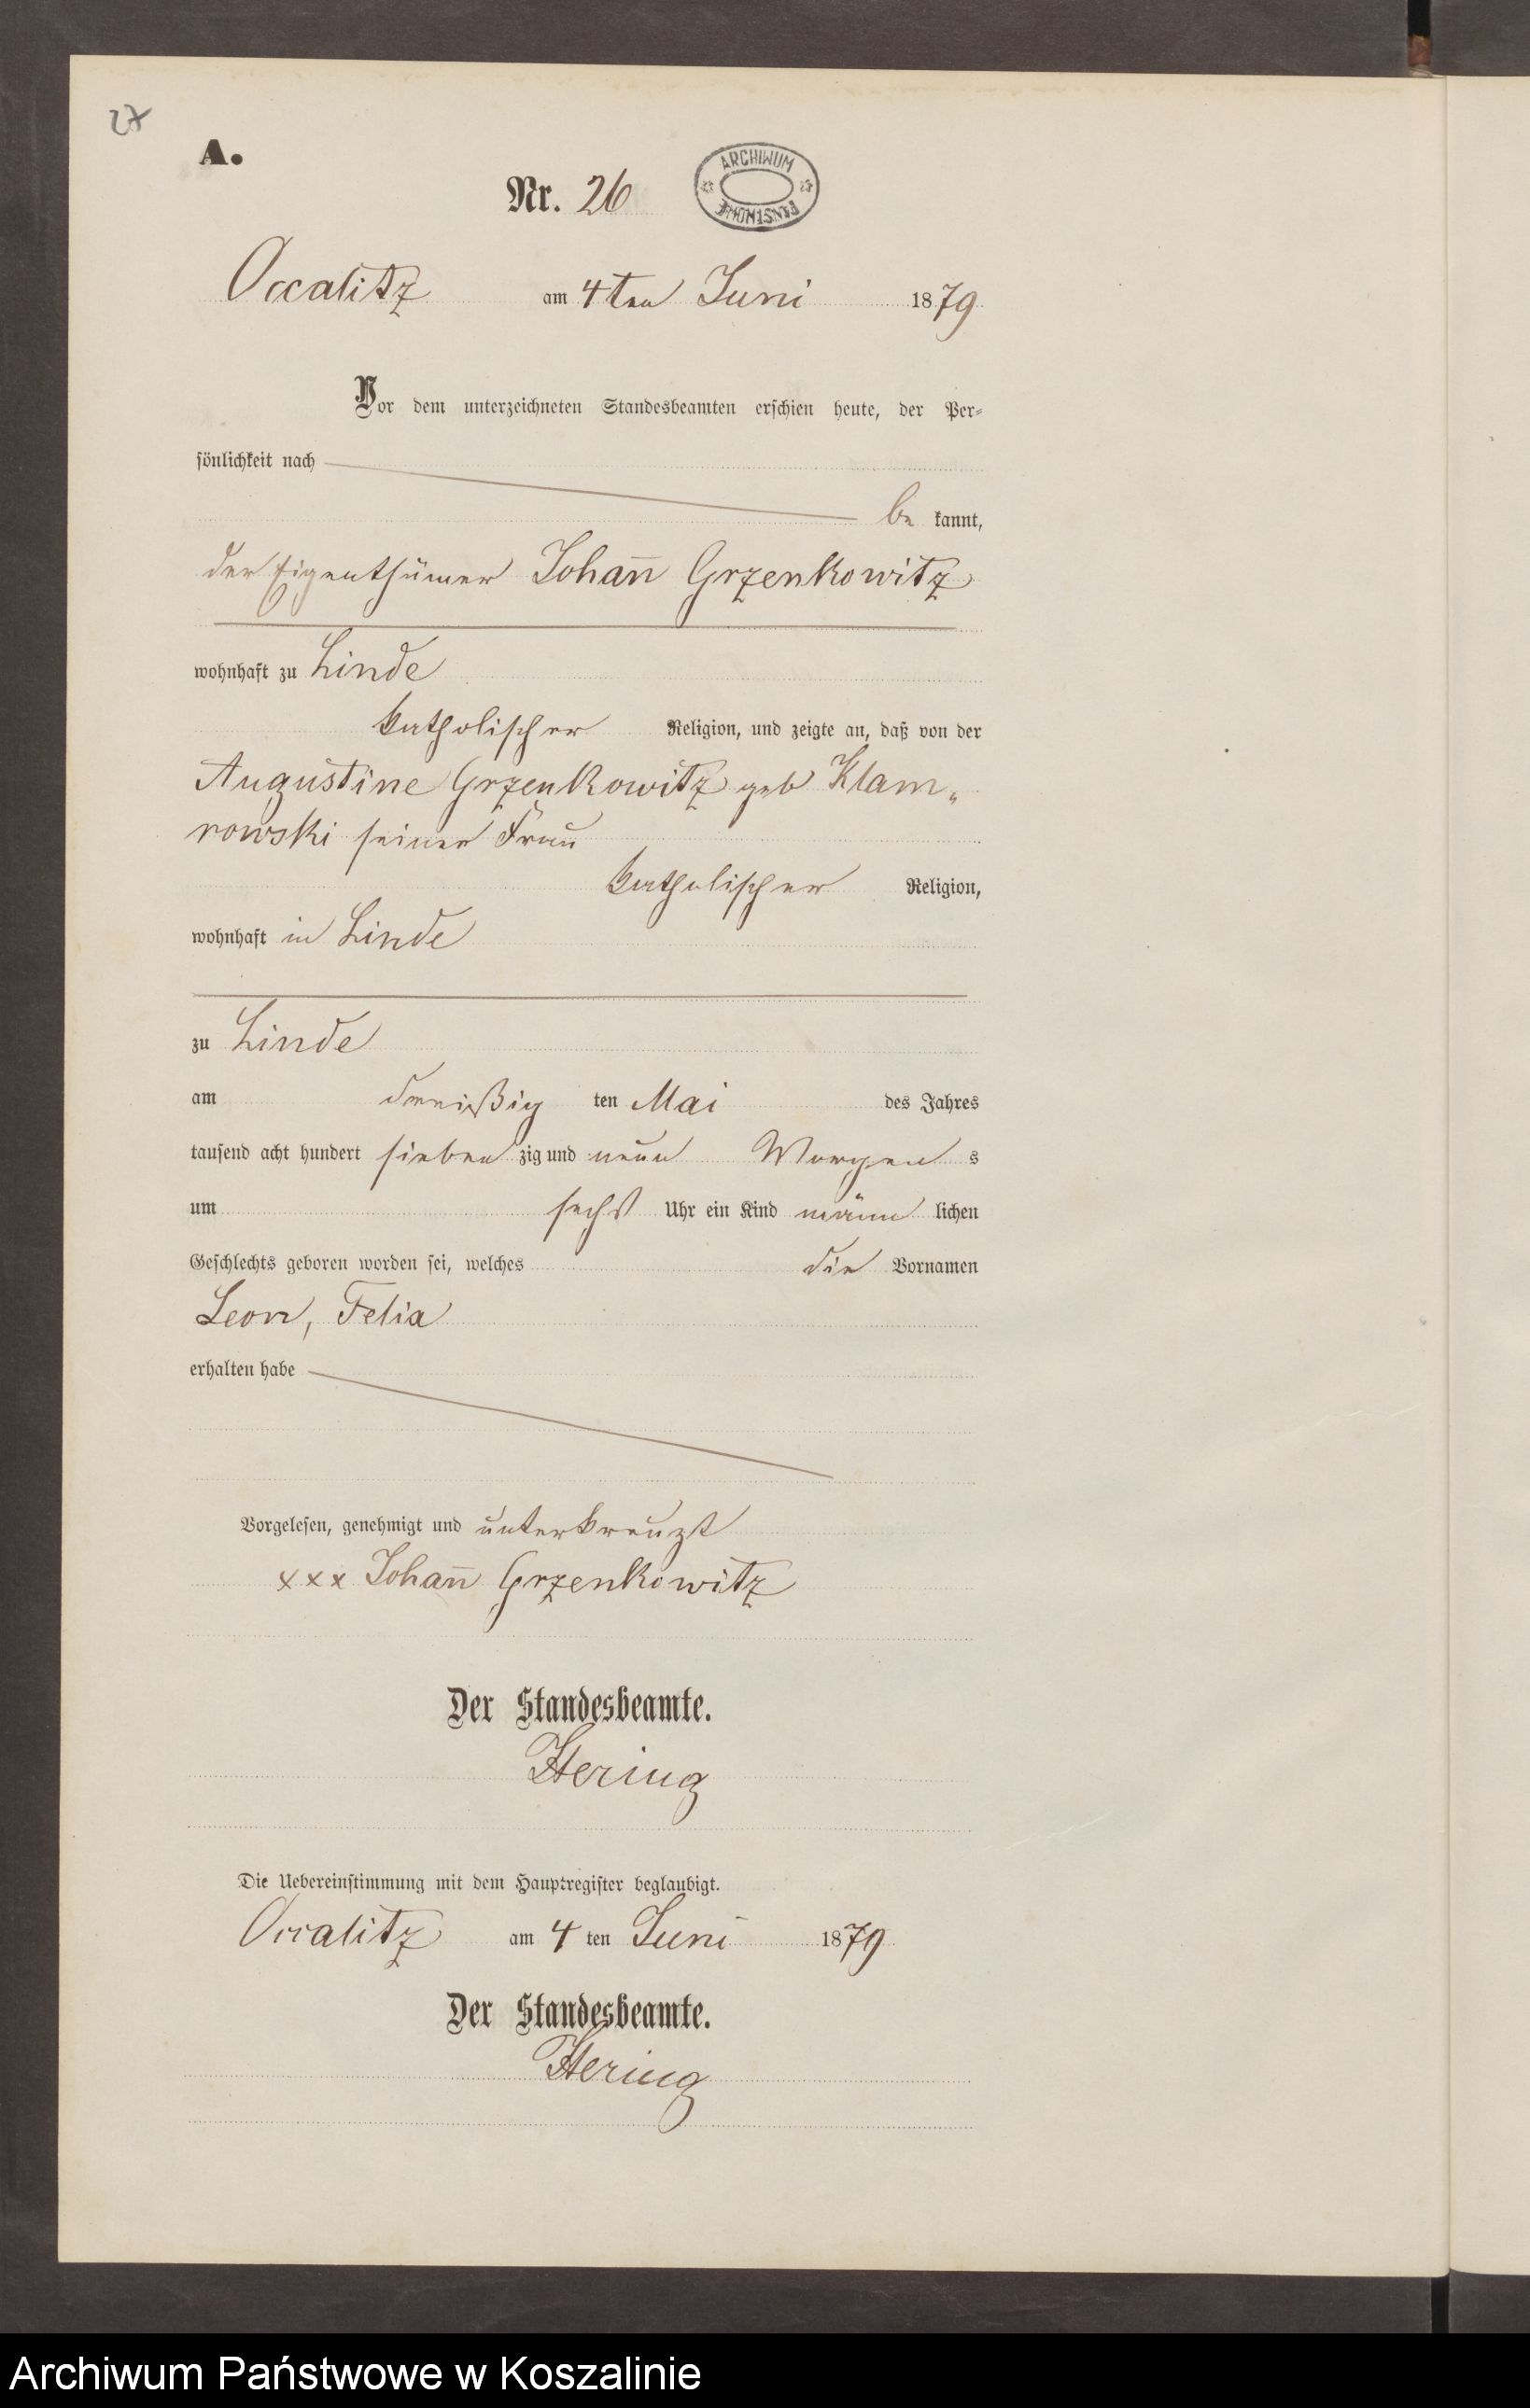 27
A.
Nr. 26
ARCHIWUM PAŃSTWOWE
Occalitz am 4ten Juni 1879
Vor dem unterzeichneten Standesbeamten erschien heute, der Per-
sönlichkeit nach
be kannt,
der Eigenthümer Johan̅n Grzenkowitz
wohnhaft zu Linde
katholischer Religion, und zeigte an, daß von der
Augustine Grzenkowitz geb Klam„
rowski seiner Frau
katholischer Religion,
wohnhaft in Linde
zu Linde
am dreißig ten Mai des Jahres
tausend acht hundert sieben zig und neun Morgen s
um sechs Uhr ein Kind männ lichen
Geschlechts geboren worden sei, welches die Vornamen
Leon, Felix
erhalten habe
Vorgelesen, genehmigt und unterkreuzt
xxx Johan̅n Grzenkowitz
Der Standesbeamte.
Hering
Die Uebereinstimmung mit dem Hauptregister beglaubigt.
Occalitz am 4 ten Juni 1879
Der Standesbeamte.
Hering
Archiwum Państwowe w Koszalinie